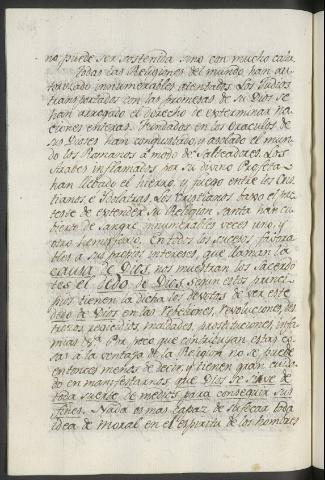 no puede ser sostenida sino con mucho calor.
Todas las Religiones del mundo han au-
torizado innumerables atentados. Los Judios
transportados con las promesas de su Dios se
han arrogado el derecho de exterminar na-
ciones enteras. Fundados en los oraculos de
sus Dioses han conquistado, y asolado el mun-
do los Romanos a modo de Salteadores. Los
Arabes inflamados por su divino Profeta
han llebado el hierro, y fuego entre los Cris-
tianos e Idolatras. Los Cristianos baxo el pre-
texto de extender su Religion Santa han cu-
bierto de sangre innumerables veces uno, y
otro hemisferio. En todos los sucesos favora-
bles a sus propios intereses, que llaman la
causa de Dios, nos muestran los Sacerdo-
tes el dedo de Dios. Segun estos princi-
pios tienen la dicha los devotos de ver este
dedo de Dios en las rebeliones, revoluciones, des-
trozos, regicidios, maldades, prostituciones, infa-
mias &a. Por poco que contribuyan estas co-
sas a la ventaja de la Religion no se puede
entonces menos de decir, y tienen gran cuida-
do en manifestarnos que Dios se sirve de
toda suerte de medios para conseguir sus
fines. Nada es mas capaz de sufocar toda
idea de moral en el espiritu de los hombres